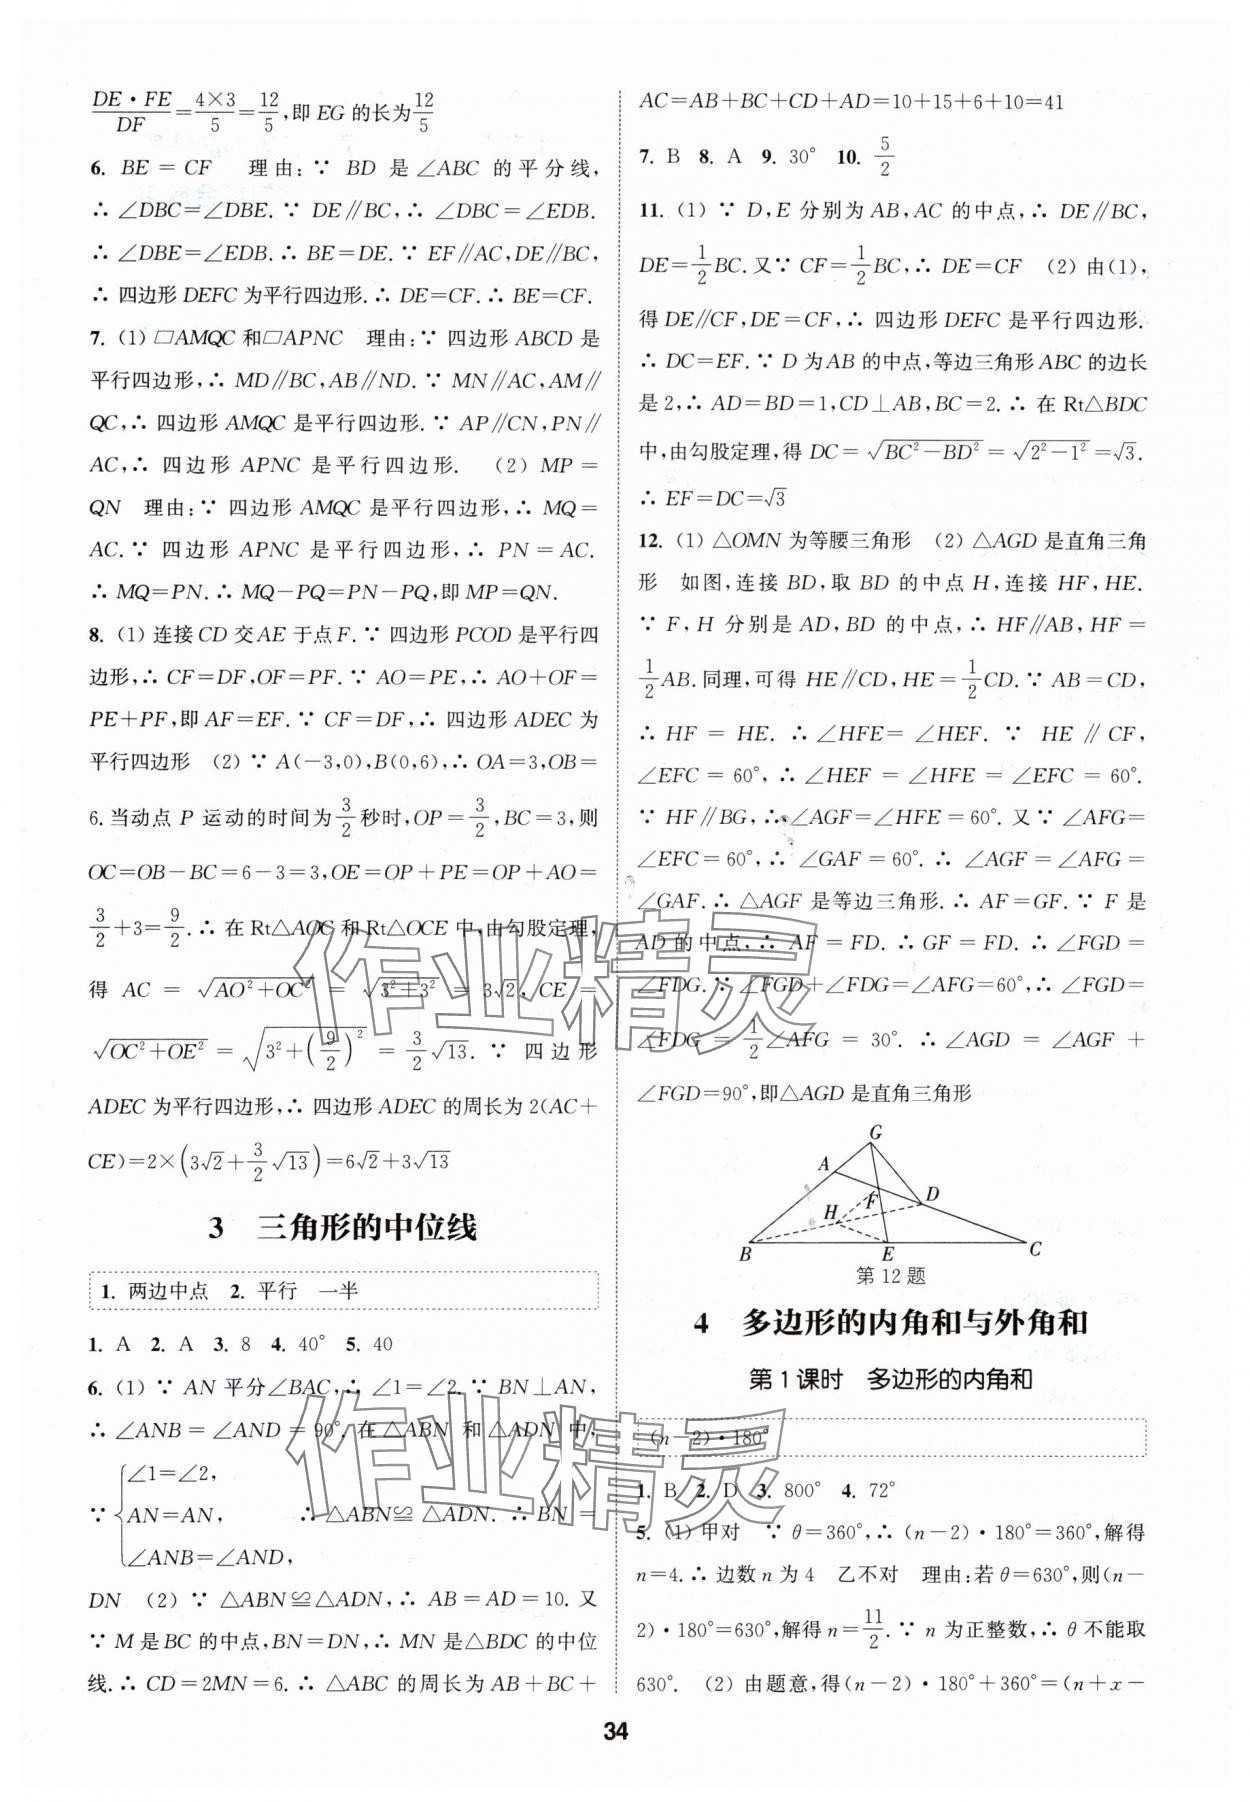 DE·FE/DF=4×3/5=12/5,即 EG 的长为12/5
6. BE=CF 理由:∵ BD 是∠ABC 的平分线,
∴ ∠DBC=∠DBE.∵ DE∥BC,∴ ∠DBC=∠EDB.
∴ ∠DBE=∠EDB.∴ BE=DE.∵ EF∥AC,DE∥BC,
∴ 四边形DEFC为平行四边形.∴ DE=CF.∴ BE=CF.
7. (1) □AMQC和□APNC 理由:∵ 四边形ABCD是
平行四边形,∴ MD∥BC,AB∥ND.∵ MN∥AC,AM∥
QC,∴ 四边形AMQC是平行四边形.∵ AP∥CN,PN∥
AC,∴ 四边形 APNC 是平行四边形. (2) MP=
QN 理由:∵ 四边形 AMQC 是平行四边形,∴ MQ=
AC.∵ 四边形 APNC 是平行四边形,∴ PN=AC.
∴ MQ=PN.∴ MQ-PQ=PN-PQ,即MP=QN.
8. (1) 连接CD交AE于点F.∵ 四边形PCOD是平行四
边形,∴ CF=DF,OF=PF.∵ AO=PE,∴ AO+OF=
PE+PF,即AF=EF.∵ CF=DF,∴ 四边形ADEC为
平行四边形 (2) ∵ A(-3,0),B(0,6),∴ OA=3,OB=
6.当动点 P 运动的时间为3/2秒时,OP=3/2,BC=3,则
OC=OB-BC=6-3=3,OE=OP+PE=OP+AO=
3/2+3=9/2.∴ 在Rt△AOC和Rt△OCE中,由勾股定理,
得 AC=√(AO²+OC²)=√(3²+3²)=3√2,CE=
√(OC²+OE²)=√(3²+(9/2)²)=3/2√13.∵ 四边形
ADEC为平行四边形,∴ 四边形ADEC的周长为2(AC+
CE)=2×(3√2+3/2√13)=6√2+3√13
3 三角形的中位线
1. 两边中点 2. 平行 一半
1. A 2. A 3. 8 4. 40° 5. 40
6. (1) ∵ AN平分∠BAC,∴ ∠1=∠2.∵ BN⊥AN,
∴ ∠ANB=∠AND=90°.在△ABN 和△ADN 中,
∠1=∠2,
∵ AN=AN, ∴ △ABN≌△ADN.∴ BN=
∠ANB=∠AND,
DN (2) ∵ △ABN≌△ADN,∴ AB=AD=10.又
∵ M是BC的中点,BN=DN,∴ MN是△BDC的中位
线.∴ CD=2MN=6.∴ △ABC的周长为AB+BC+
AC=AB+BC+CD+AD=10+15+6+10=41
7. B 8. A 9. 30° 10. 5/2
11. (1) ∵ D,E分别为AB,AC的中点,∴ DE∥BC,
DE=1/2BC.又∵ CF=1/2BC,∴ DE=CF (2) 由(1),
得DE∥CF,DE=CF,∴ 四边形DEFC是平行四边形.
∴ DC=EF.∵ D为AB的中点,等边三角形ABC的边长
是2,∴ AD=BD=1,CD⊥AB,BC=2.∴ 在Rt△BDC
中,由勾股定理,得DC=√(BC²-BD²)=√(2²-1²)=√3.
∴ EF=DC=√3
12. (1) △OMN为等腰三角形 (2) △AGD是直角三角
形 如图,连接BD,取BD的中点H,连接HF,HE.
∵ F,H 分别是AD,BD的中点,∴ HF∥AB,HF=
1/2AB.同理,可得HE∥CD,HE=1/2CD.∵ AB=CD,
∴ HF=HE.∴ ∠HFE=∠HEF.∵ HE∥CF,
∠EFC=60°,∴ ∠HEF=∠HFE=∠EFC=60°.
∵ HF∥BG,∴ ∠AGF=∠HFE=60°.又∵ ∠AFG=
∠EFC=60°,∴ ∠GAF=60°.∴ ∠AGF=∠AFG=
∠GAF.∴ △AGF是等边三角形.∴ AF=GF.∵ F是
AD的中点,∴ AF=FD.∴ GF=FD.∴ ∠FGD=
∠FDG.∵ ∠FGD+∠FDG=∠AFG=60°,∴ ∠FGD=
∠FDG=1/2∠AFG=30°.∴ ∠AGD=∠AGF+
∠FGD=90°,即△AGD是直角三角形
G
A
F
D
H
B
E
C
第12题
4 多边形的内角和与外角和
第1课时 多边形的内角和
(n-2)·180°
1. B 2. D 3. 800° 4. 72°
5. (1) 甲对 ∵ θ=360°,∴ (n-2)·180°=360°,解得
n=4.∴ 边数n为4 乙不对 理由:若θ=630°,则(n-
2)·180°=630°,解得n=11/2.∵ n为正整数,∴ θ不能取
630°. (2) 由题意,得(n-2)·180°+360°=(n+x-
34
作业精灵
作业精灵